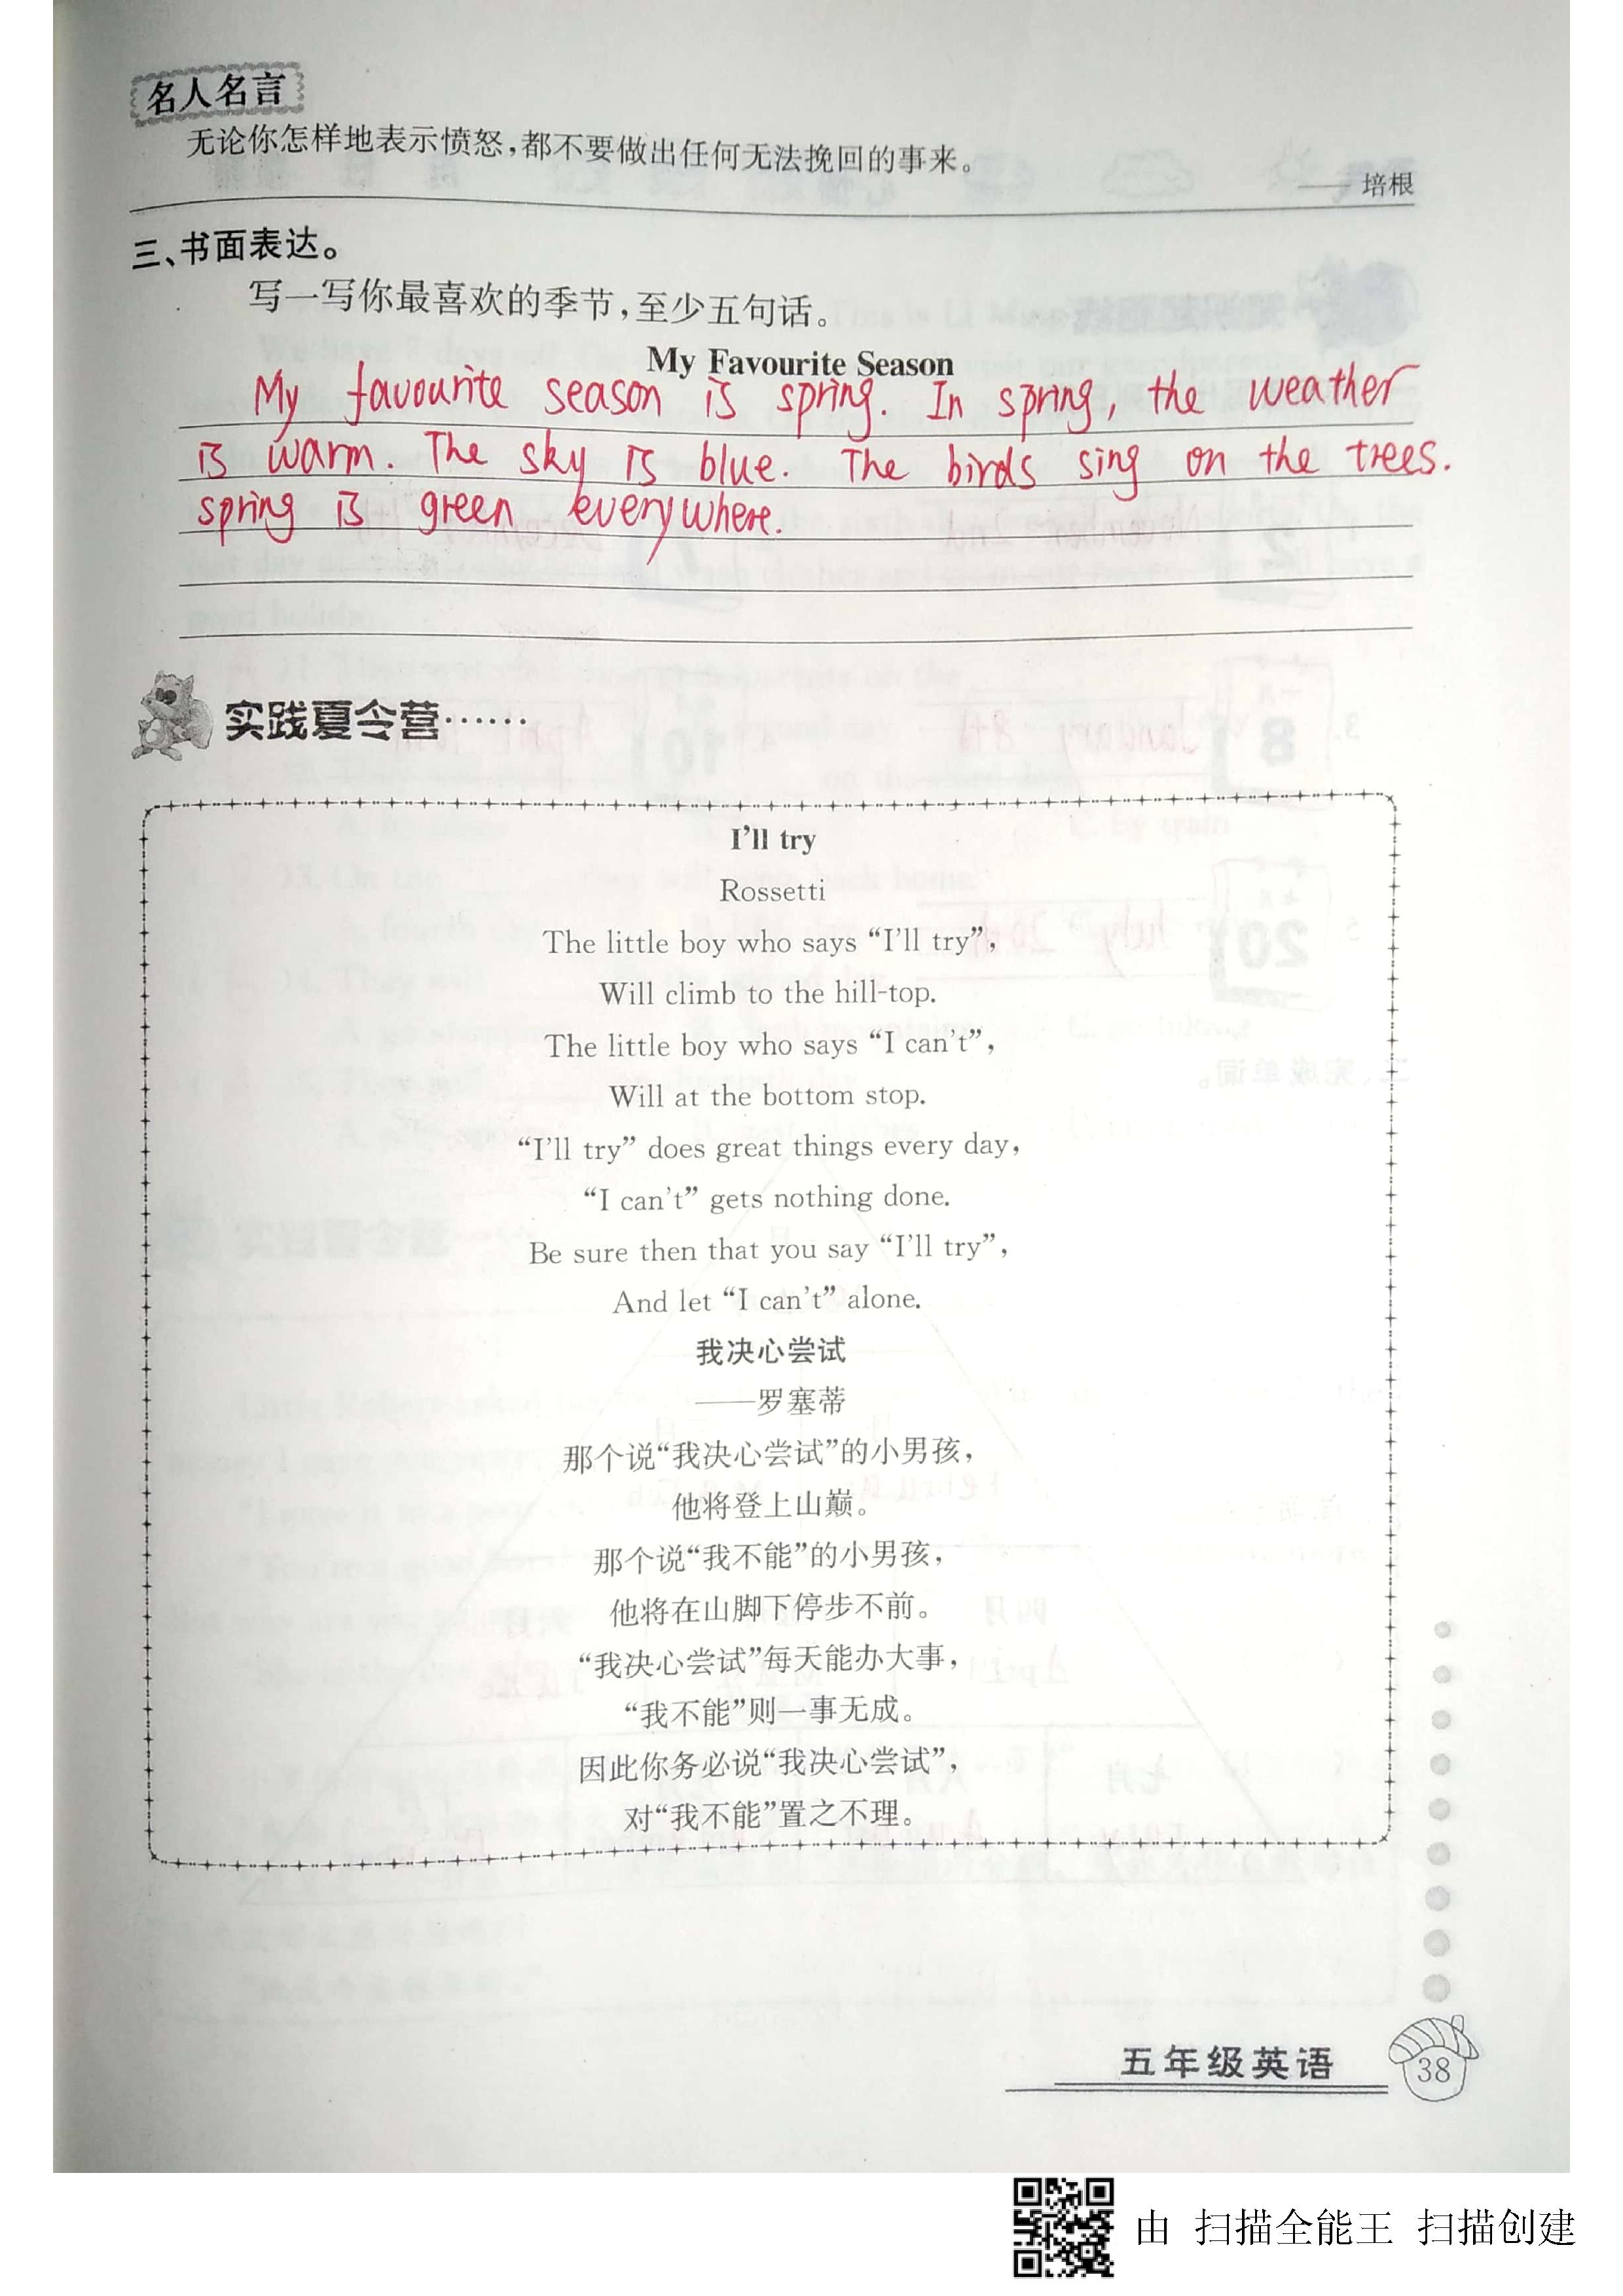 名人名言
无论你怎样地表示愤怒,都不要做出任何无法挽回的事来。
——培根
三、书面表达。
写一写你最喜欢的季节,至少五句话。
My Favourite Season
My favourite season is spring. In spring, the weather
is warm. The sky is blue. The birds sing on the trees.
spring is green everywhere.
实践夏令营······
I'll try
Rossetti
The little boy who says “I'll try”,
Will climb to the hill-top.
The little boy who says “I can't”,
Will at the bottom stop.
“I'll try” does great things every day,
“I can't” gets nothing done.
Be sure then that you say “I'll try”,
And let “I can't” alone.
我决心尝试
——罗塞蒂
那个说“我决心尝试”的小男孩,
他将登上山巅。
那个说“我不能”的小男孩,
他将在山脚下停步不前。
“我决心尝试”每天能办大事,
“我不能”则一事无成。
因此你务必说“我决心尝试”,
对“我不能”置之不理。
五年级英语
38
由 扫描全能王 扫描创建